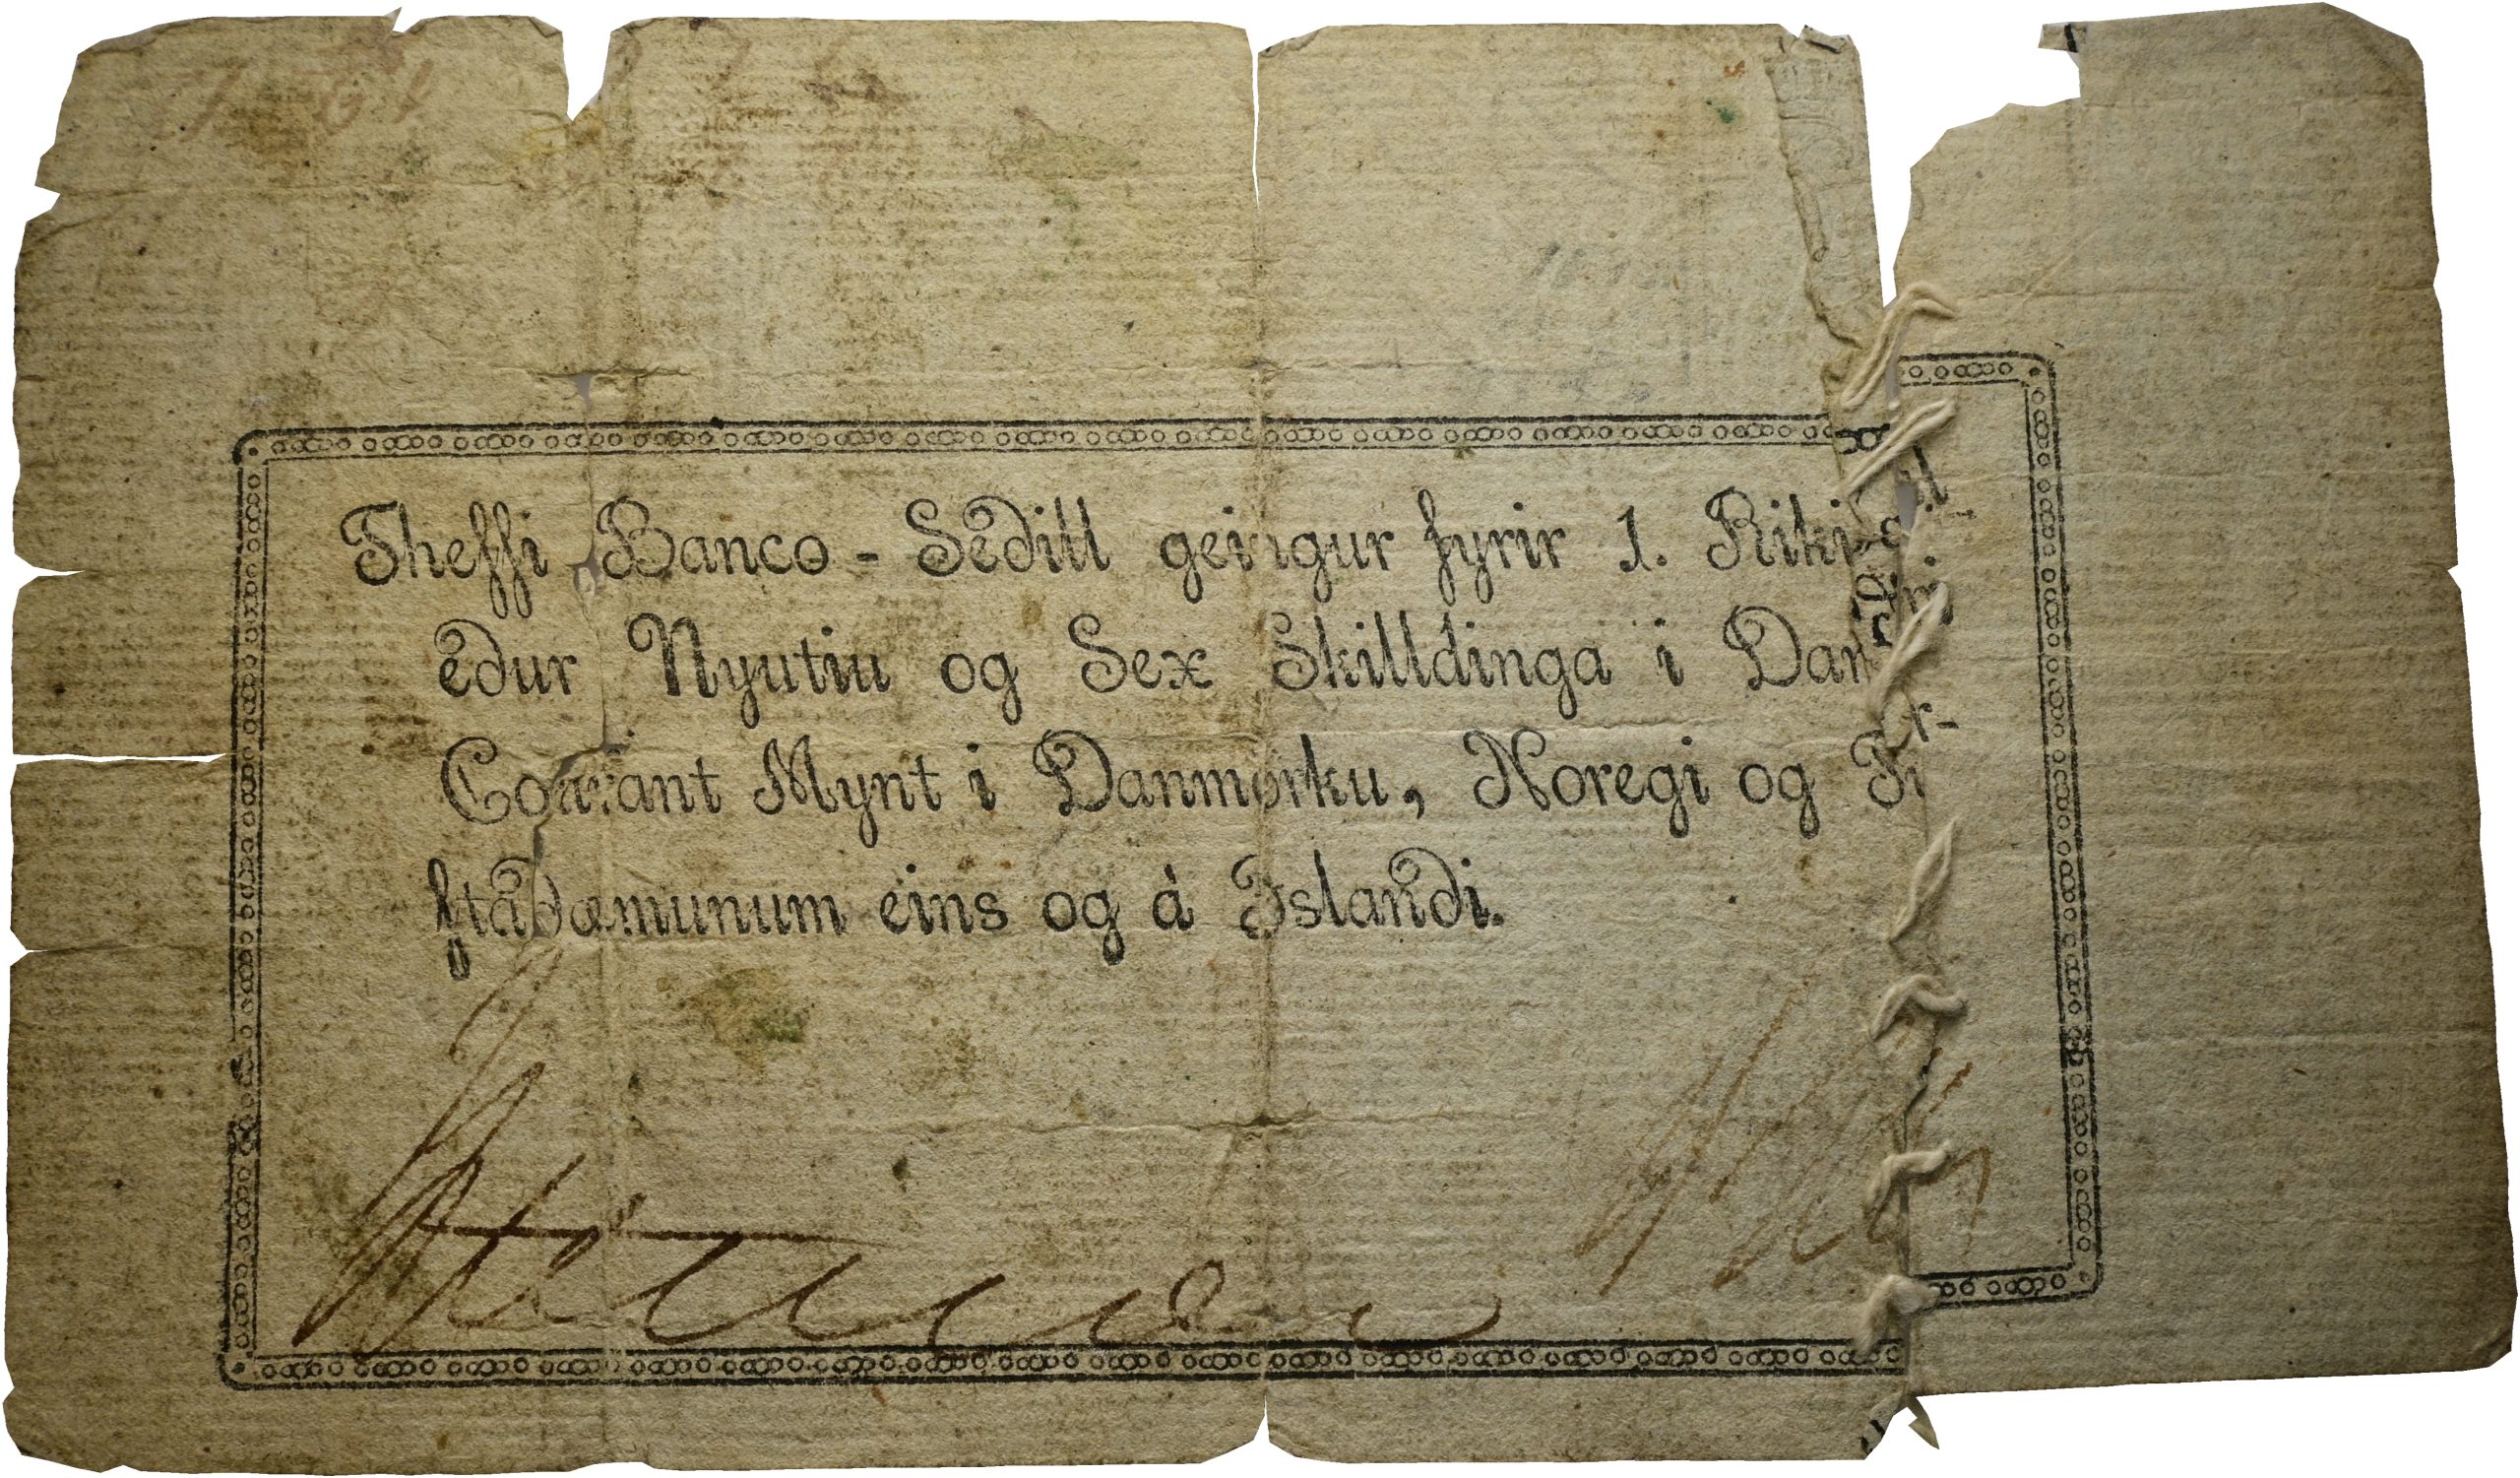 Thessi Banco - Sedill geingur fyrir 1. Rikis
edur Nyutiu og Sex Skilldinga i
Courant Mynt i Danmørku, Noregi og
stadæmunum eins og á Islandi.